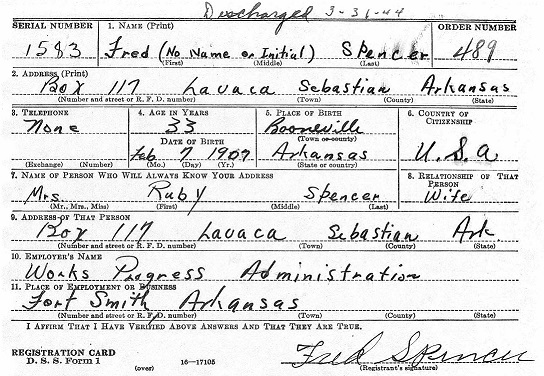 Discharged 3-31-44
SERIAL NUMBER 1. NAME (Print) ORDER NUMBER
1583 Fred (No Name or Initial) Spencer 489
(First) (Middle) (Last)
2. ADDRESS (Print)
Box 117 Lavaca Sebastian Arkansas
(Number and street or R. F. D. number) (Town) (County) (State)
3. TELEPHONE 4. AGE IN YEARS 5. PLACE OF BIRTH 6. COUNTRY OF CITIZENSHIP
None 33 Booneville
DATE OF BIRTH (Town or county)
Feb 7 1907 Arkansas U.S.A
(Exchange) (Number) (Mo.) (Day) (Yr.) (State or country)
7. NAME OF PERSON WHO WILL ALWAYS KNOW YOUR ADDRESS 8. RELATIONSHIP OF THAT PERSON
Mrs. Ruby Spencer Wife
(Mr., Mrs., Miss) (First) (Middle) (Last)
9. ADDRESS OF THAT PERSON
Box 117 Lavaca Sebastian Ark.
(Number and street or R. F. D. number) (Town) (County) (State)
10. EMPLOYER'S NAME
Works Progress Administration
11. PLACE OF EMPLOYMENT OR BUSINESS
Fort Smith Arkansas
(Number and street or R. F. D. number) (Town) (County) (State)
I AFFIRM THAT I HAVE VERIFIED ABOVE ANSWERS AND THAT THEY ARE TRUE.
REGISTRATION CARD
D. S. S. Form 1 16—17105 Fred Spencer
(over) (Registrant's signature)